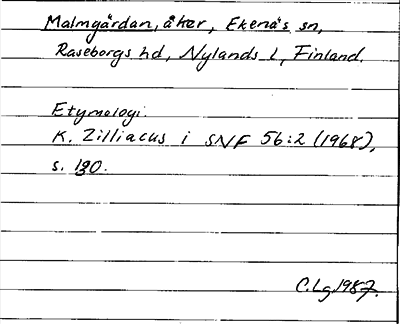 Malmgårdan, åker, Ekenäs sn,
Raseborgs hd, Nylands l, Finland.
Etymologi.
K. Zilliacus i SNF 56:2 (1968),
s. 130.
C.Lg 1987.